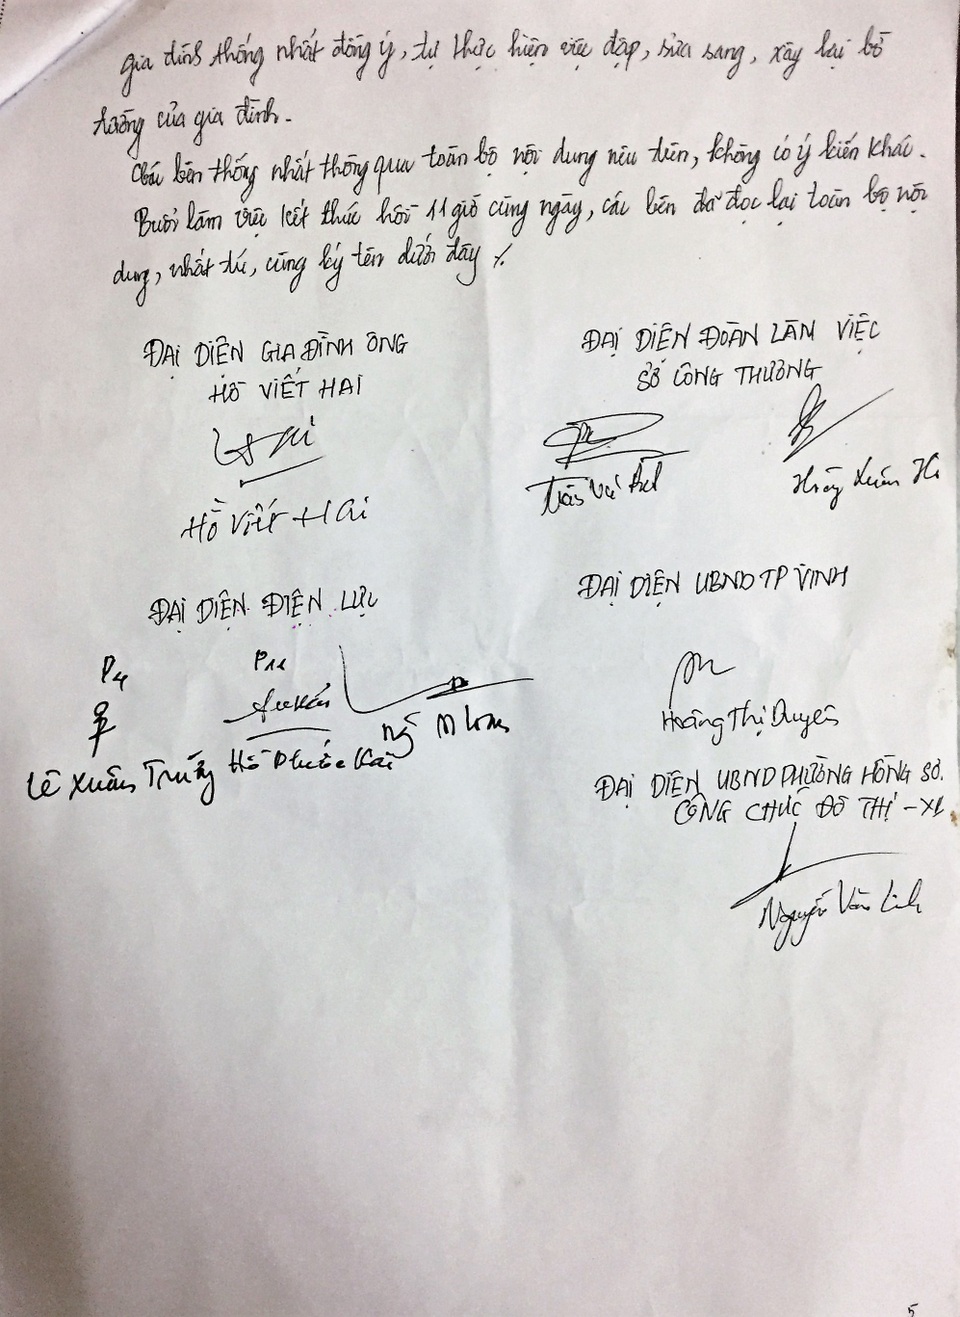 gia đình thống nhất đồng ý, tự thực hiện việc đập, sửa sang, xây lại bờ
tường của gia đình.
Các bên thống nhất thông qua toàn bộ nội dung nêu trên, không có ý kiến khác.
Buổi làm việc kết thúc hồi 11 giờ cùng ngày, các bên đã đọc lại toàn bộ nội
dung, nhất trí, cùng ký tên dưới đây ./.
ĐẠI DIỆN GIA ĐÌNH ÔNG
HỒ VIẾT HAI
Hồ Viết Hai
ĐẠI DIỆN ĐOÀN LÀM VIỆC
SỞ CÔNG THƯƠNG
Hoàng Xuân
ĐẠI DIỆN ĐIỆN LỰC
Lê Xuân Trường Hồ Phước
ĐẠI DIỆN UBND TP VINH
Hoàng Thị Duyên
ĐẠI DIỆN UBND PHƯỜNG HỒNG SƠN.
CÔNG CHỨC ĐÔ THỊ - XD
Nguyễn Văn Linh
5